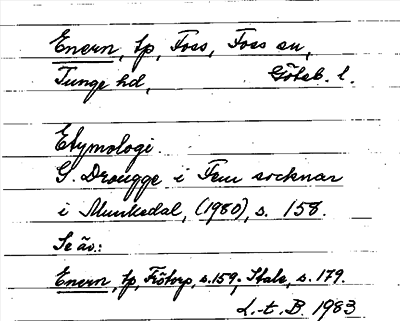 Enern, tp, Foss, Foss sn,
Tunge hd, Göteb. l.
Etymologi.
G. Drougge i Fem socknar
i Munkedal, (1980), s. 158.
Se äv.:
Enern, tp, Frötorp, s. 159. Stale, s. 179.
L.-t. B. 1983